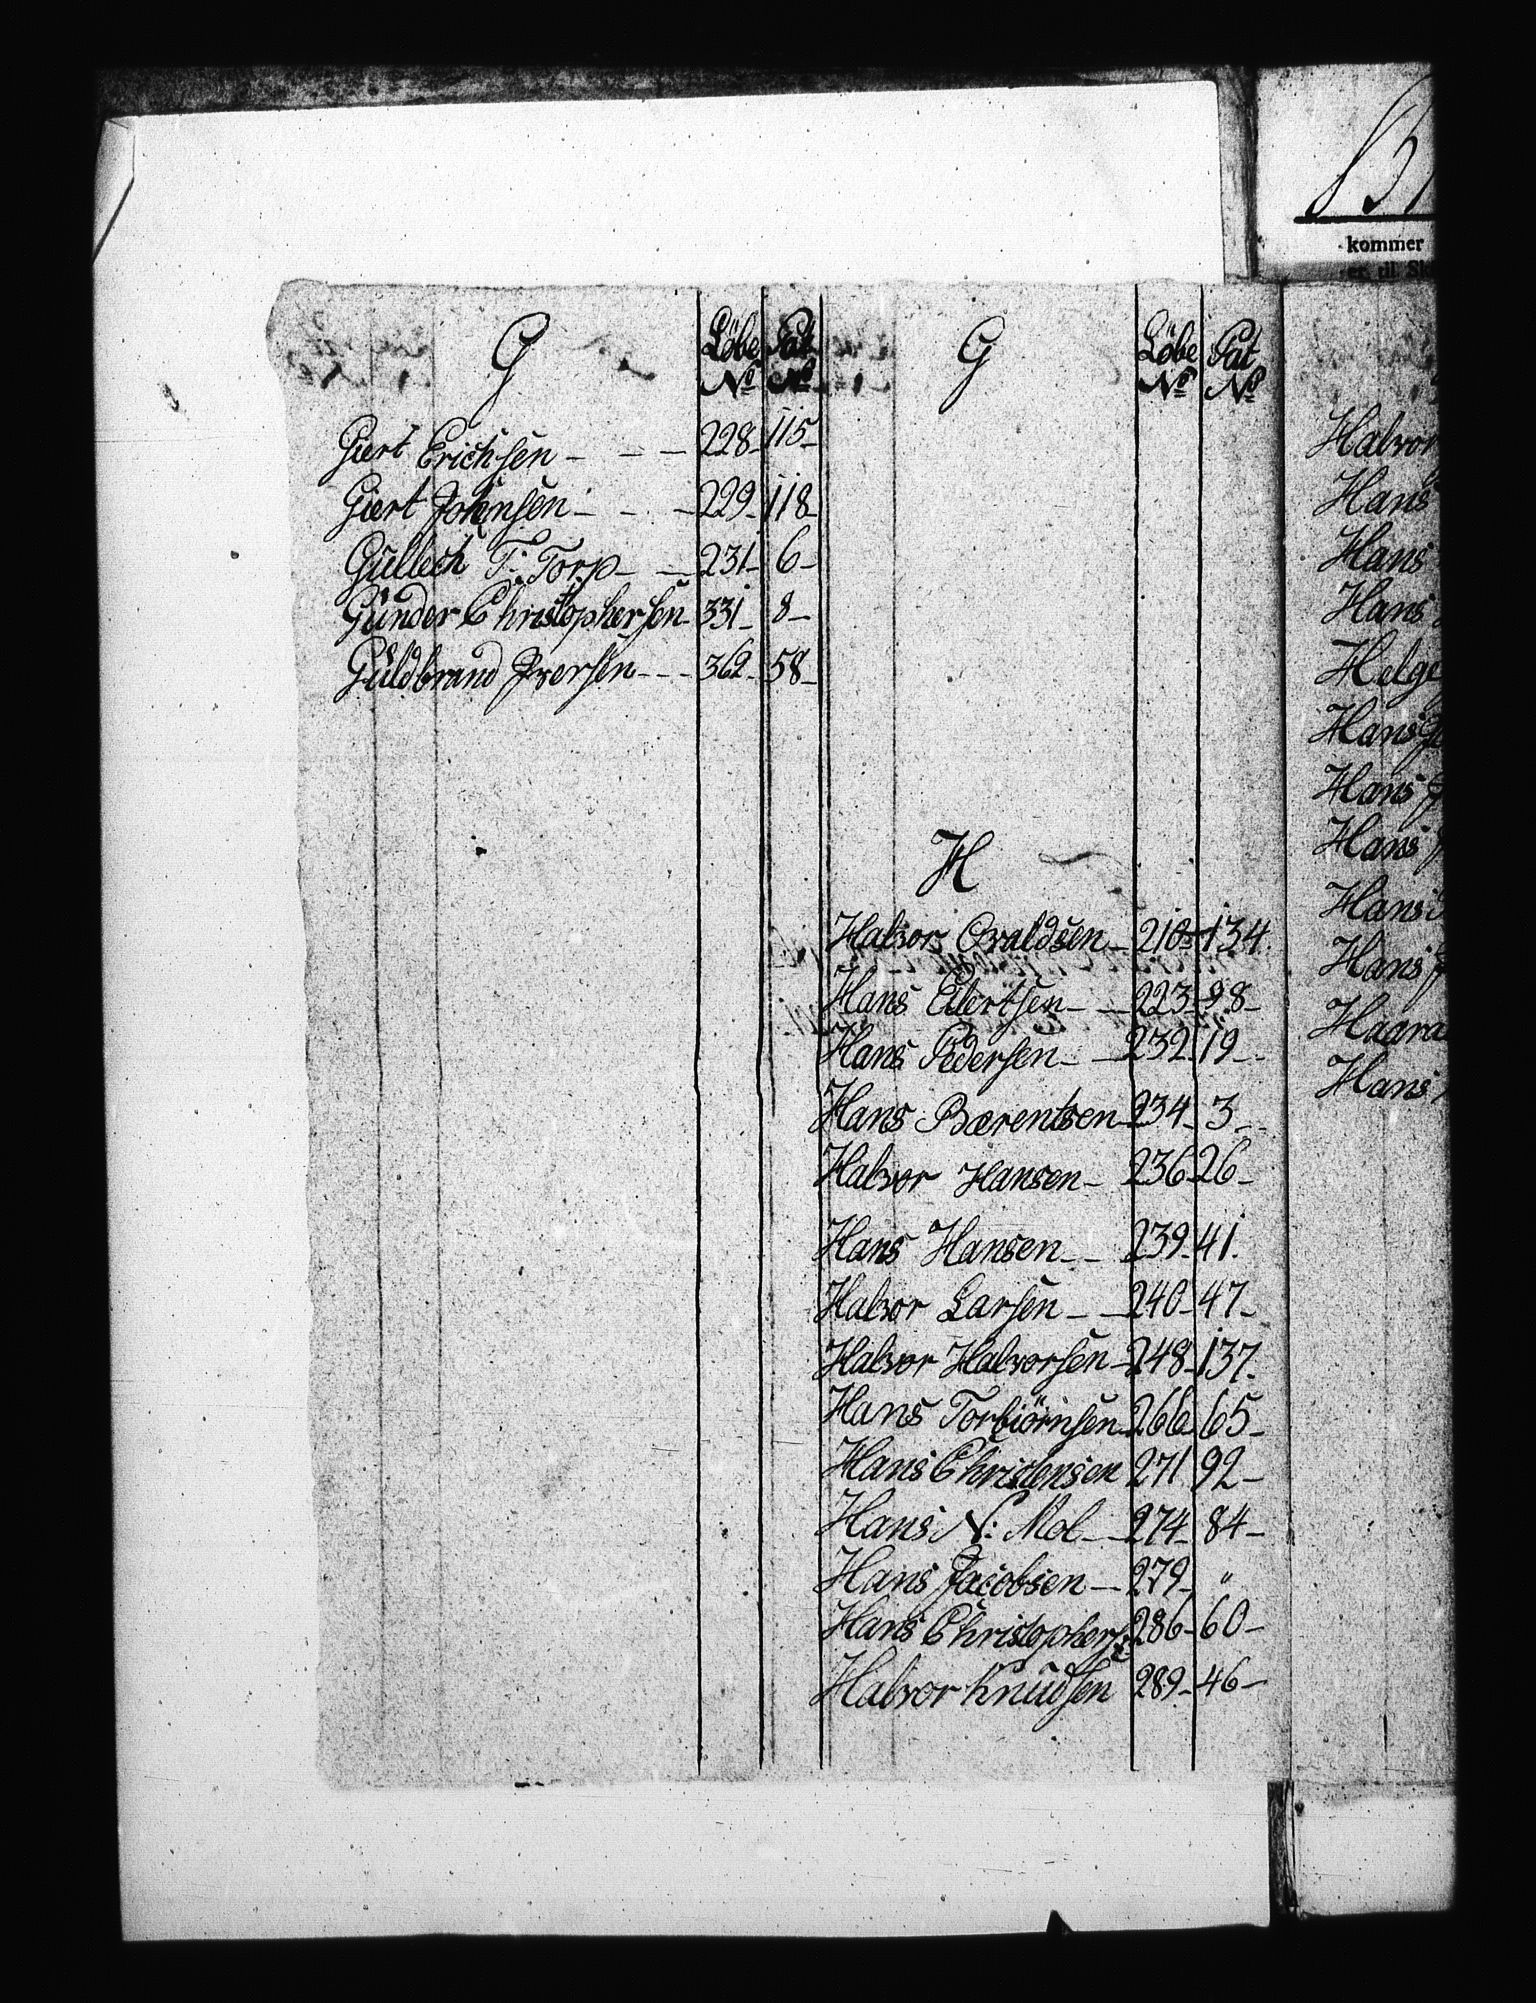 G
Löbe Pat
No No
Giert Erichsen - - - 228 - 115 -
Giert Johnsen - - - 229 - 118 -
Gullech T: Torp - - 231 - 6 -
Gunder Christophersen - 331 - 8 -
Guldbrand Iversen - - - 362 - 58 -
G
Löbe Pat
No No
H
Halvor Ovaldsen - 210 - 134.
Hans Eilertsen - - 223 - 98 -
Hans Pedersen - - 232 - 19 -
Hans Bærentsen - 234 - 3 -
Halvor Hansen - 236 - 26 -
Hans Hansen - - 239 - 41.
Halvor Larsen - - 240 - 47 -
Halvor Halvorsen - 248 - 137.
Hans Torbiörnsen - 266 - 65 -
Hans Christensen 271 92 -
Hans N: Mol - - 274 - 84 -
Hans Jacobsen - 279 - "
Hans Christophers: 286 - 60 -
Halvor Knudsen 289 - 46 -
kommer
er til
Halvor
Hans
Hans
Hans
Helge
Hans
Hans
Hans
Hans
Hans
Hans